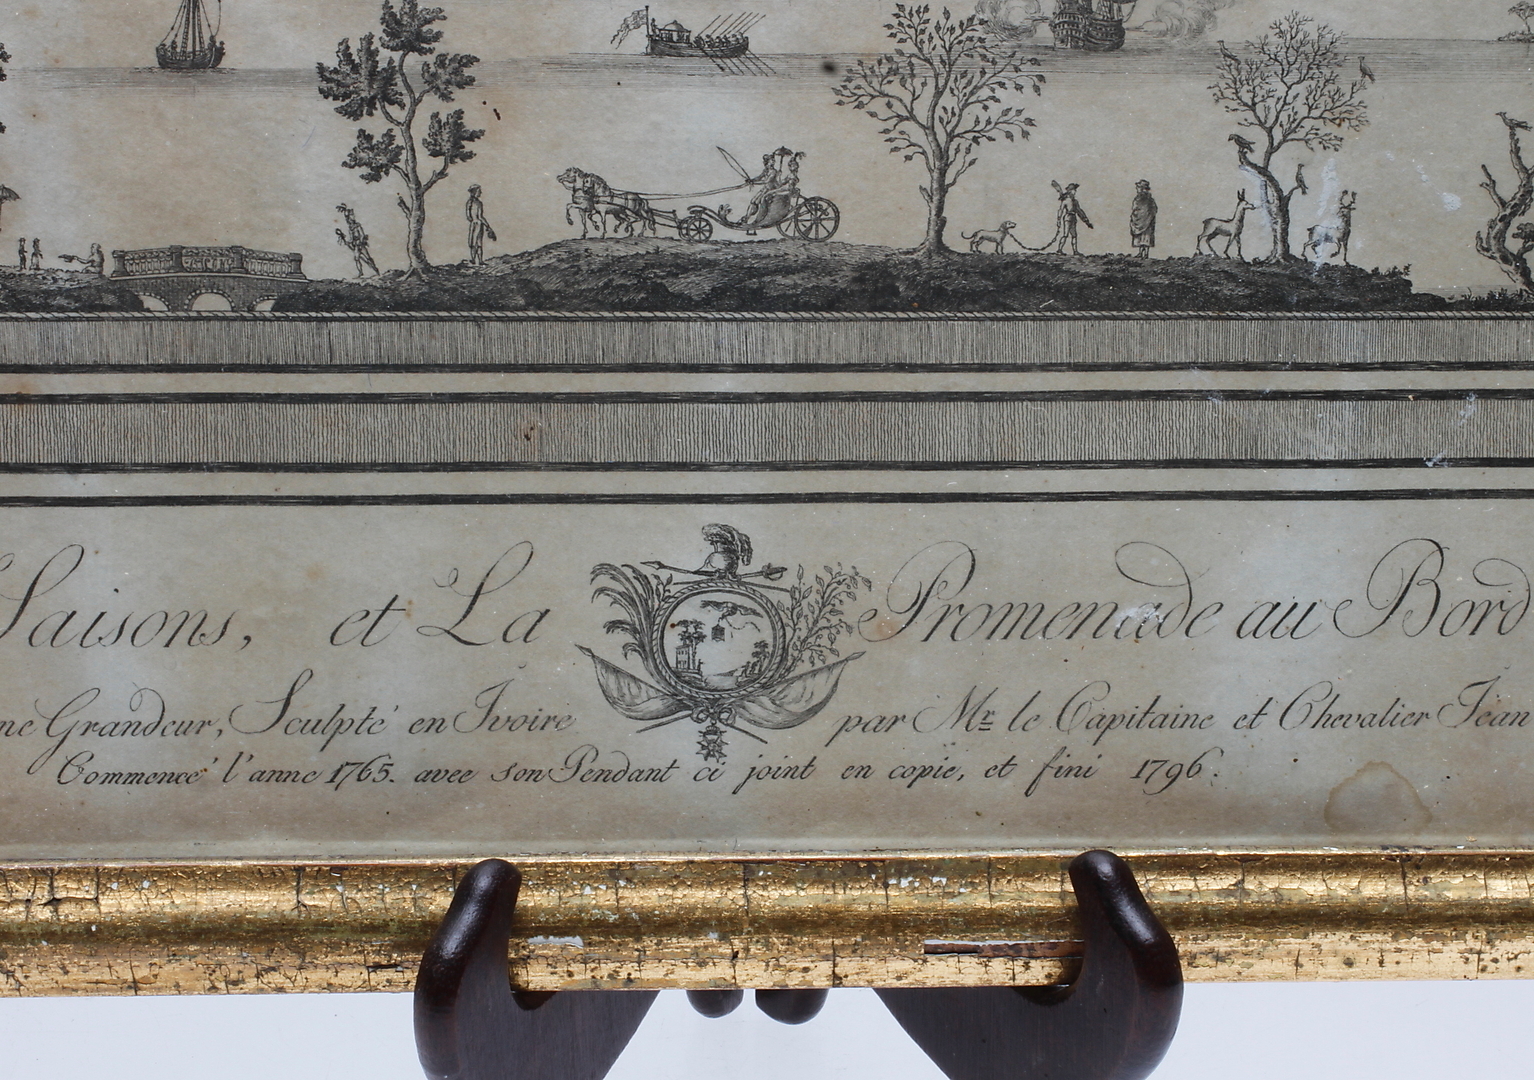 Saisons, et La Promenade au Bord
ne Grandeur, Sculpté en Ivoire par Mr. le Capitaine et Chevalier Jean
Commencé l'anne 1765. avec son Pendant ci joint en copie, et fini 1796.